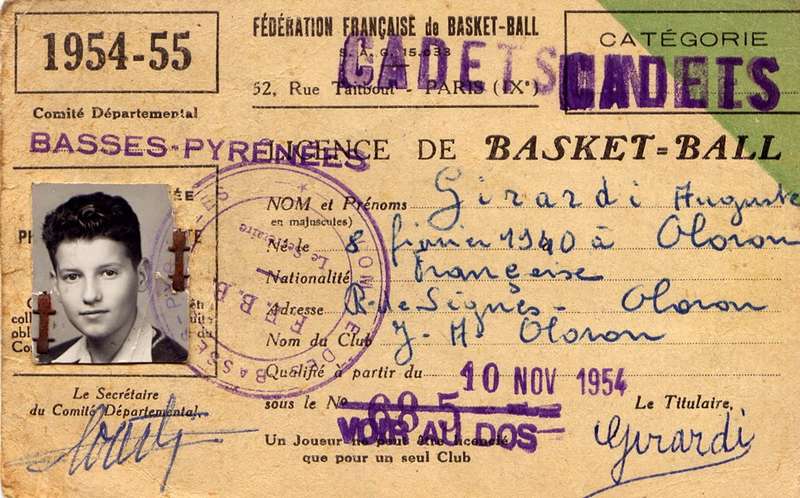 1954-55
FÉDÉRATION FRANÇAISE de BASKET-BALL
CATÉGORIE
CADETS
CADETS
52, Rue Taitbout - PARIS (IXe)
Comité Départemental
BASSES-PYRÉNÉES
LICENCE DE BASKET=BALL
NOM et Prénoms Girardi Auguste
en majuscules)
Né le 8 février 1940 à Oloron
Nationalité Française
Adresse Oloron
Nom du Club Oloron
Qualifié à partir du 10 NOV 1954
sous le No 685
VOIR AU DOS
Un Joueur ne peut être licencié
que pour un seul Club
Le Secrétaire
du Comité Départemental,
Le Titulaire,
Girardi
F. F. B. B.
Le Secrétaire